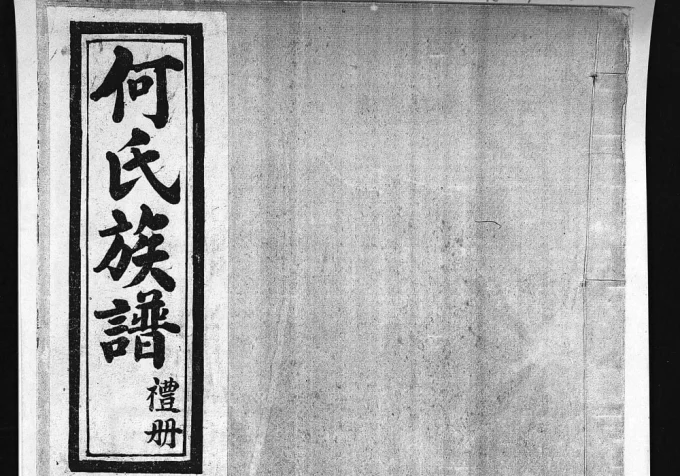 何氏族譜
禮册